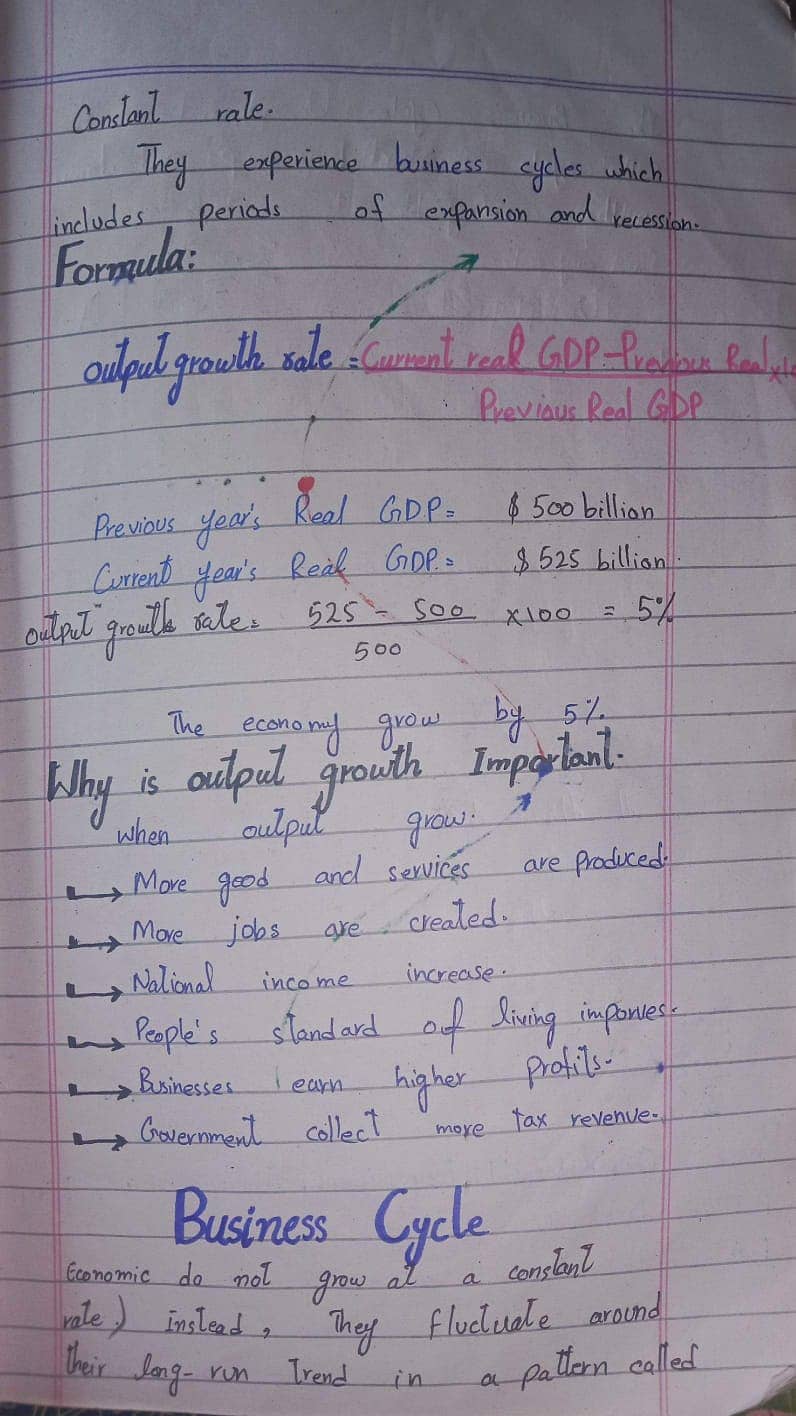 Constant rate.
They experience business cycles which
includes periods of expansion and recession.
Formula:
output growth rate = Current real GDP - Previous Real x10
Previous Real GDP
Previous year's Real GDP = $ 500 billion
Current year's Real GDP. = $ 525 billion.
output growth rate = 525 - 500 x100 = 5%
500
The economy grow by 5%.
Why is output growth Important.
when output grow.
More good and services are produced.
More jobs are created.
National income increase.
People's standard of living imporves.
Businesses earn higher profits.
Government collect more tax revenue.
Business Cycle
Economic do not grow at a constant
rate) instead, They fluctuate around
their long-run Trend in a pattern called